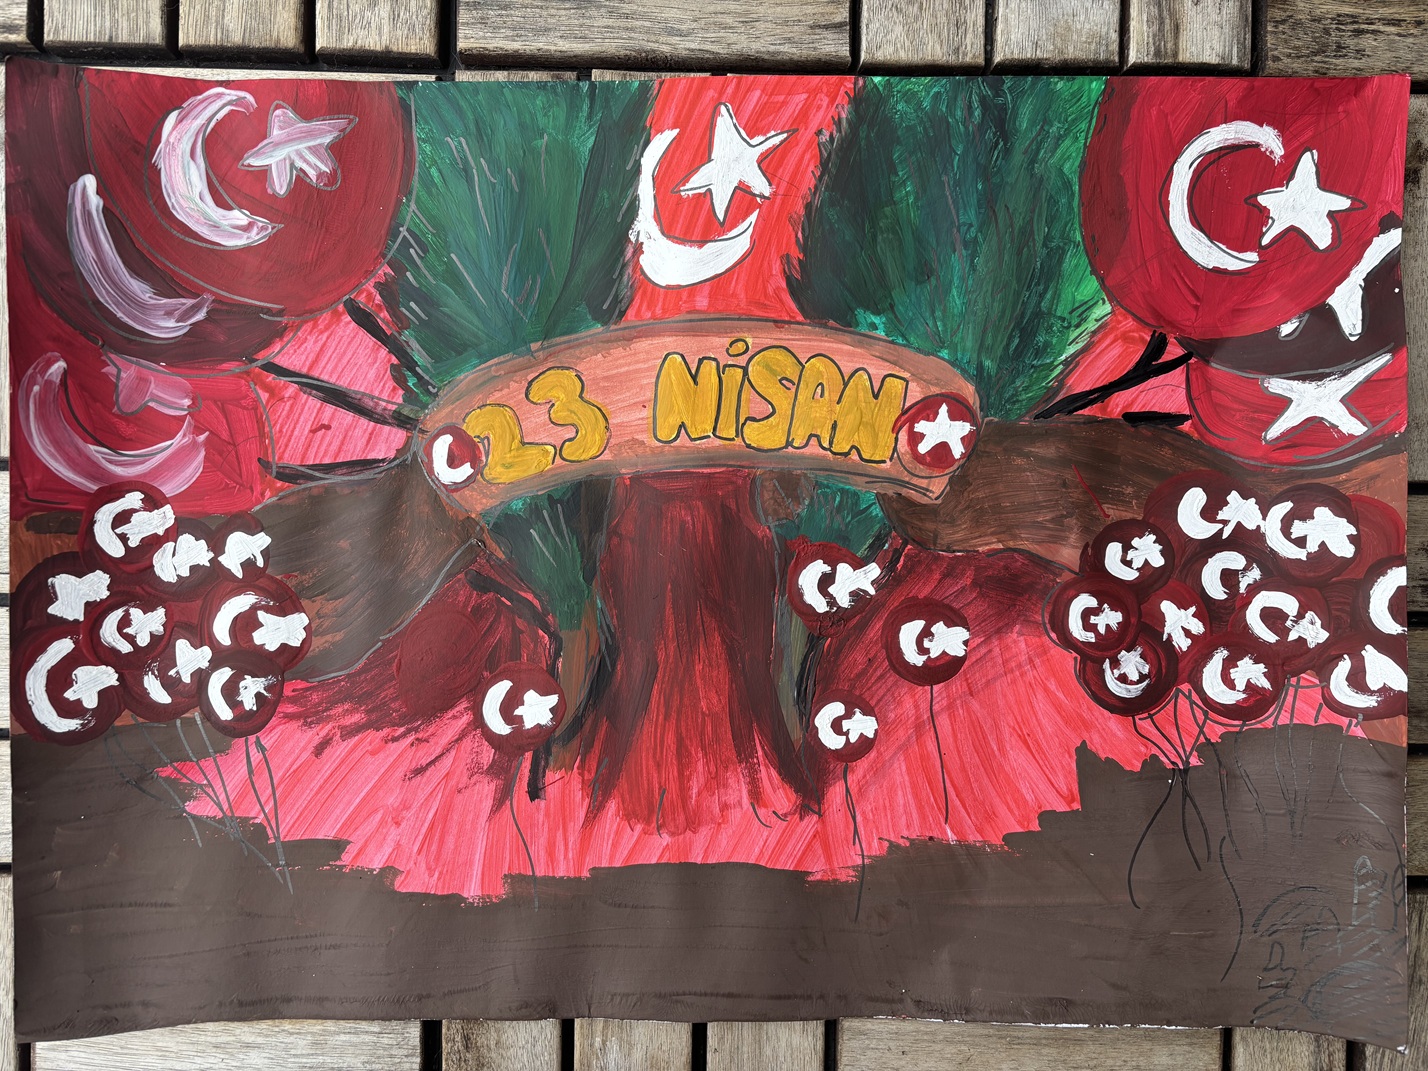 23 NiSAN